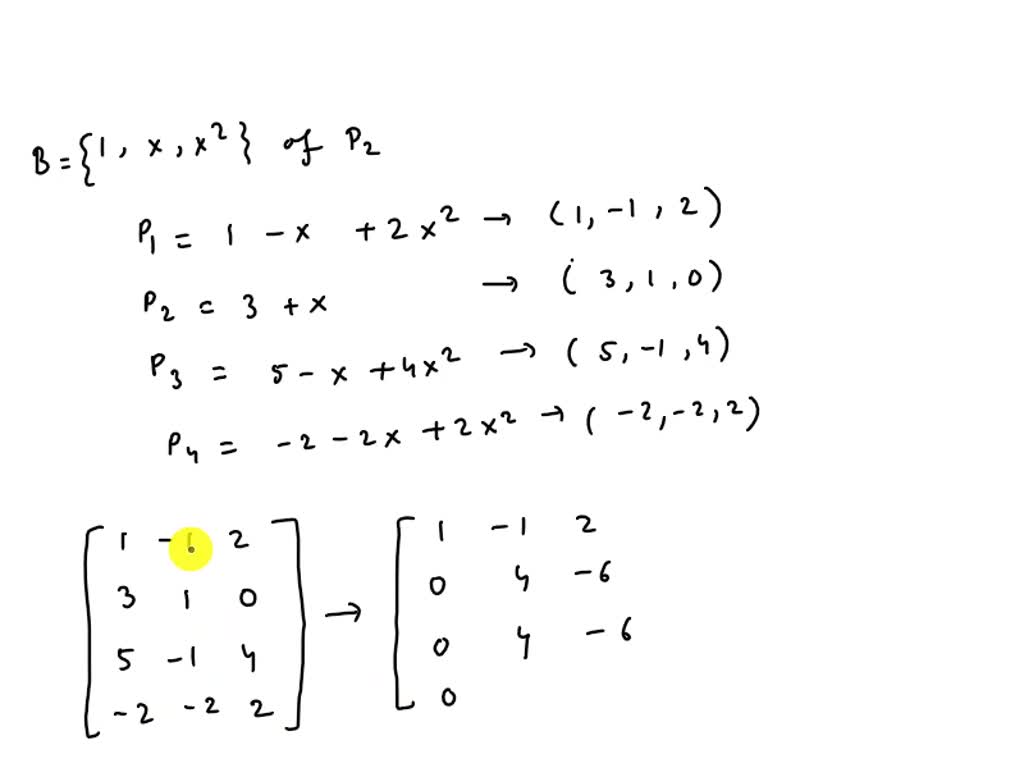 B = {1, x, x²} of P₂
P₁ = 1 - x + 2x² → (1, -1, 2)
P₂ = 3 + x → (3, 1, 0)
P₃ = 5 - x + 4x² → (5, -1, 4)
P₄ = -2 - 2x + 2x² → (-2, -2, 2)
1 -1 2 → 1 -1 2
3 1 0 0 4 -6
5 -1 4 0 4 -6
-2 -2 2 0